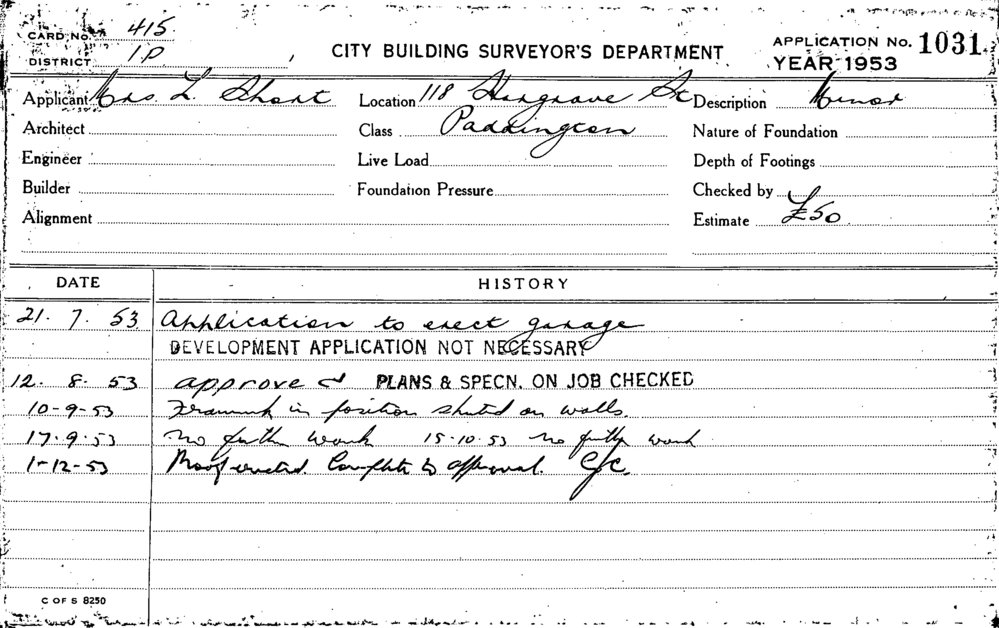 CARD No. 415
DISTRICT 1P
CITY BUILDING SURVEYOR'S DEPARTMENT
APPLICATION No. 1031
YEAR 1953
Applicant Mrs. L. Short Location 118 Hargrave St Description Minor
Architect Class Paddington Nature of Foundation
Engineer Live Load Depth of Footings
Builder Foundation Pressure Checked by
Alignment Estimate £50
DATE HISTORY
21. 7. 53 Application to erect garage
DEVELOPMENT APPLICATION NOT NECESSARY
12. 8. 53 approved PLANS & SPECN. ON JOB CHECKED
10-9-53 Framework in position on walls.
17.9.53 No further work 15.10.53 No further work
1-12-53 Roof erected Complete to approval. CJC.
C OF S 8250